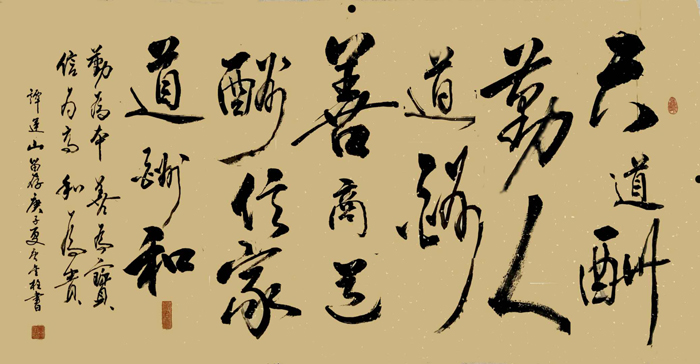 天道酬
勤人
道酬
善商道
酬信家
道酬和
勤為本善為寶
信為高和為貴
山留存庚子夏書